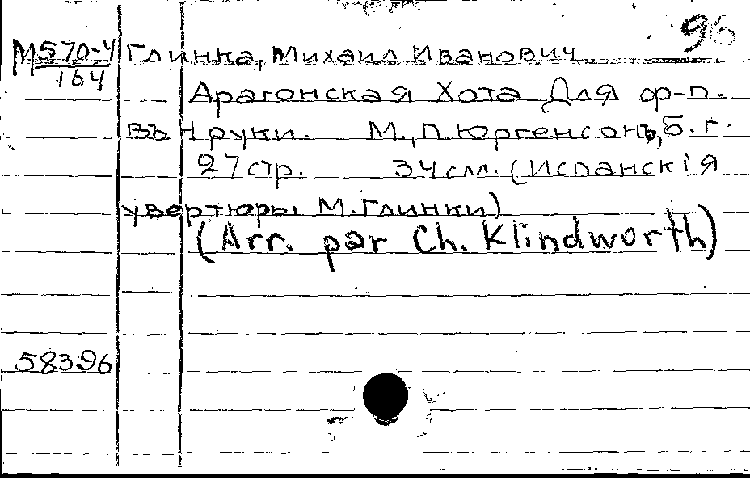 96
М570-4 Глинка, Михаил Иванович
164
Арагонская Хота Для ф-п.
въ 4 руки. М., П. Юргенсонъ, б. г.
27 стр. 34 см. (Испанскія
увертюры М. Глинки)
(Arr. par Ch. Klindworth)
58396